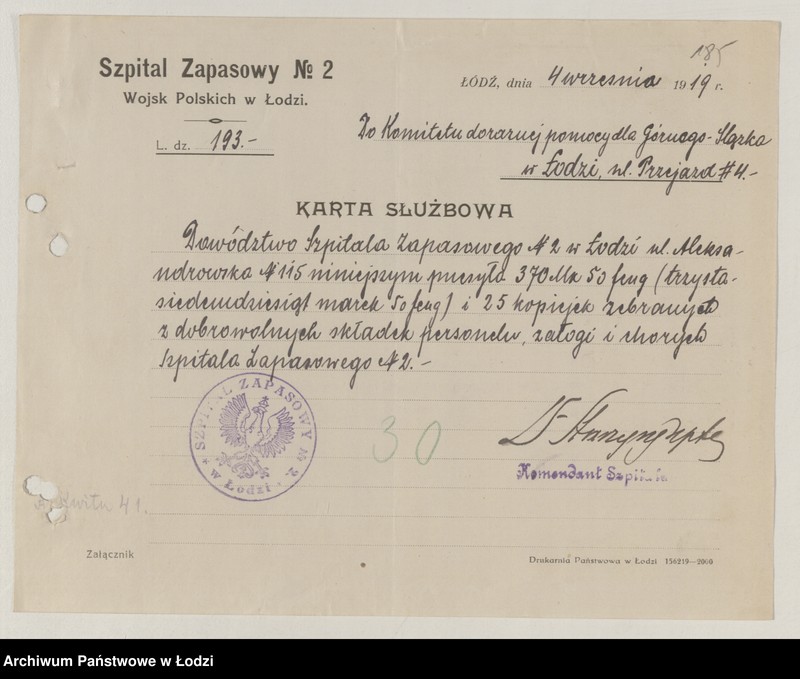 185
Szpital Zapasowy № 2
Wojsk Polskich w Łodzi.
L. dz. 193.-
ŁÓDŹ, dnia 4 września 1919 r.
Do Komitetu doraznej pomocy dla Górnego-Slązka
w Łodzi, ul. Przejazd # 4.-
KARTA SŁUŻBOWA
Dowództwo Szpitala Zapasowego № 2 w Łodzi ul. Aleksa-
ndrowska № 115 niniejszym puesyła 370 Mk 50 feng (trzysta-
siedemdziesiąt marek 50 feng) i 25 kopiejek zebranych
z dobrowolnych składek personelu, załogi i chorych
Szpitala Zapasowego № 2.-
SZPITAL ZAPASOWY № 2.
w Łodzi
30
Dr
Komendant Szpitala
41.
Załącznik
Drukarnia Państwowa w Łodzi 156219—2000